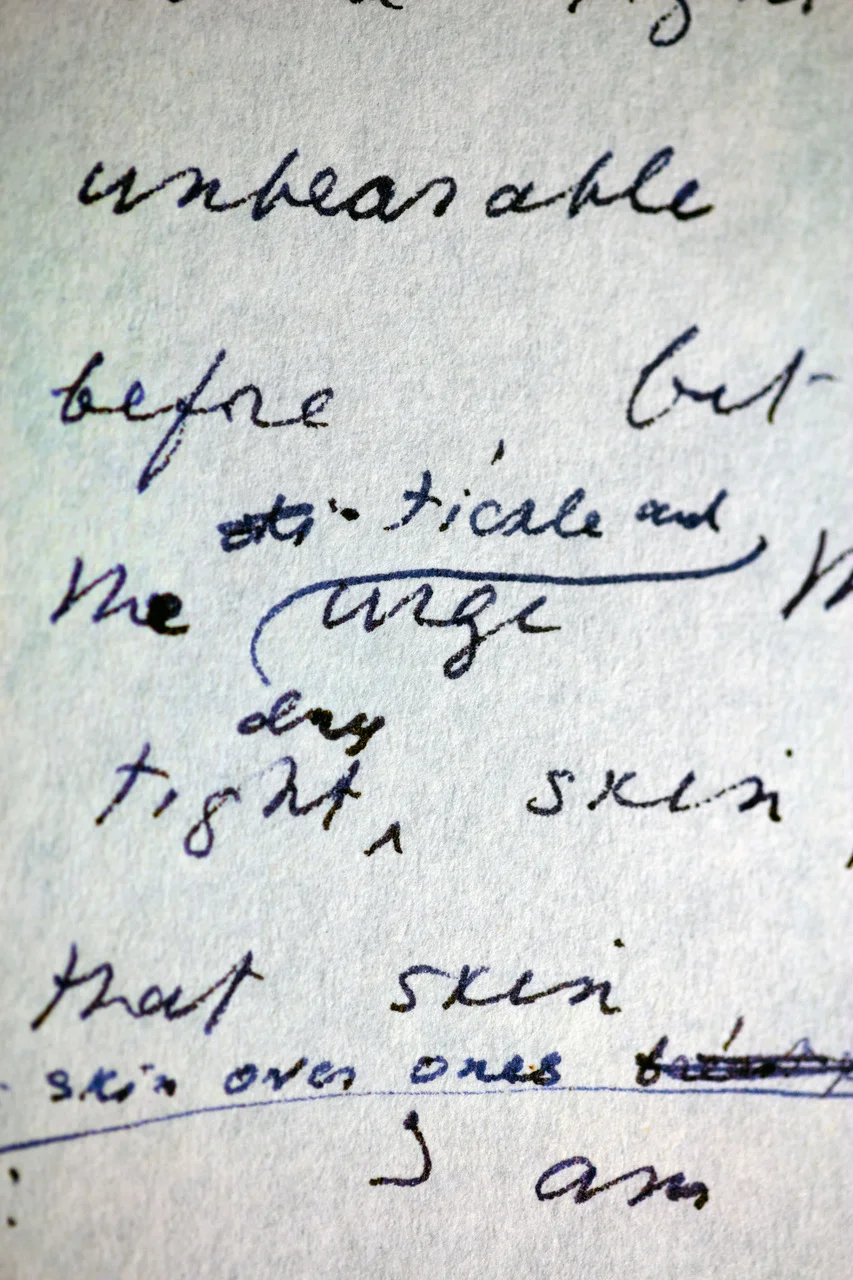 unbearable
before but
tickle and
the urge
dry
tight, skin
that skin
skin over ones
I am